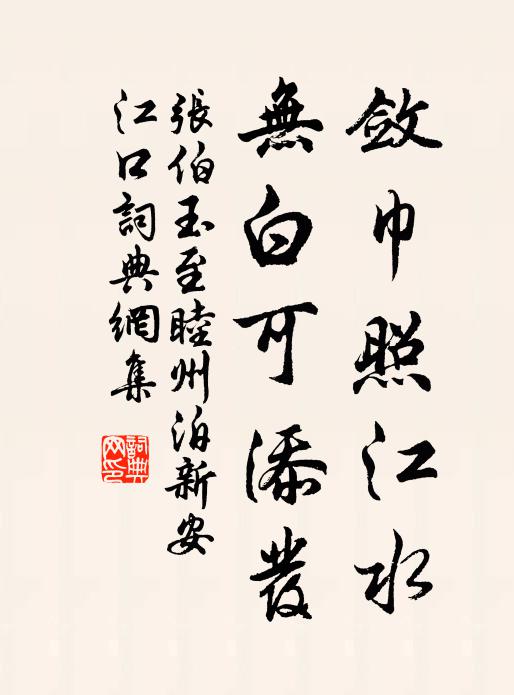 斂巾照江水
無白可添髮
張伯玉至睦州泊新安
江口詞典網集
詞典
网印